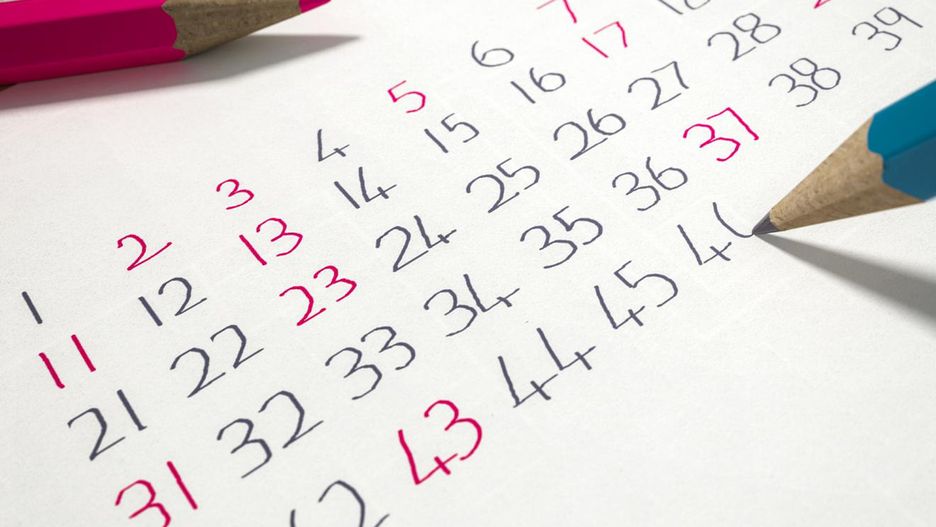 1 2 3 4 5 6 7
11 12 13 14 15 16 17 18
21 22 23 24 25 26 27 28
31 32 33 34 35 36 37 38 39
2 43 44 45 4